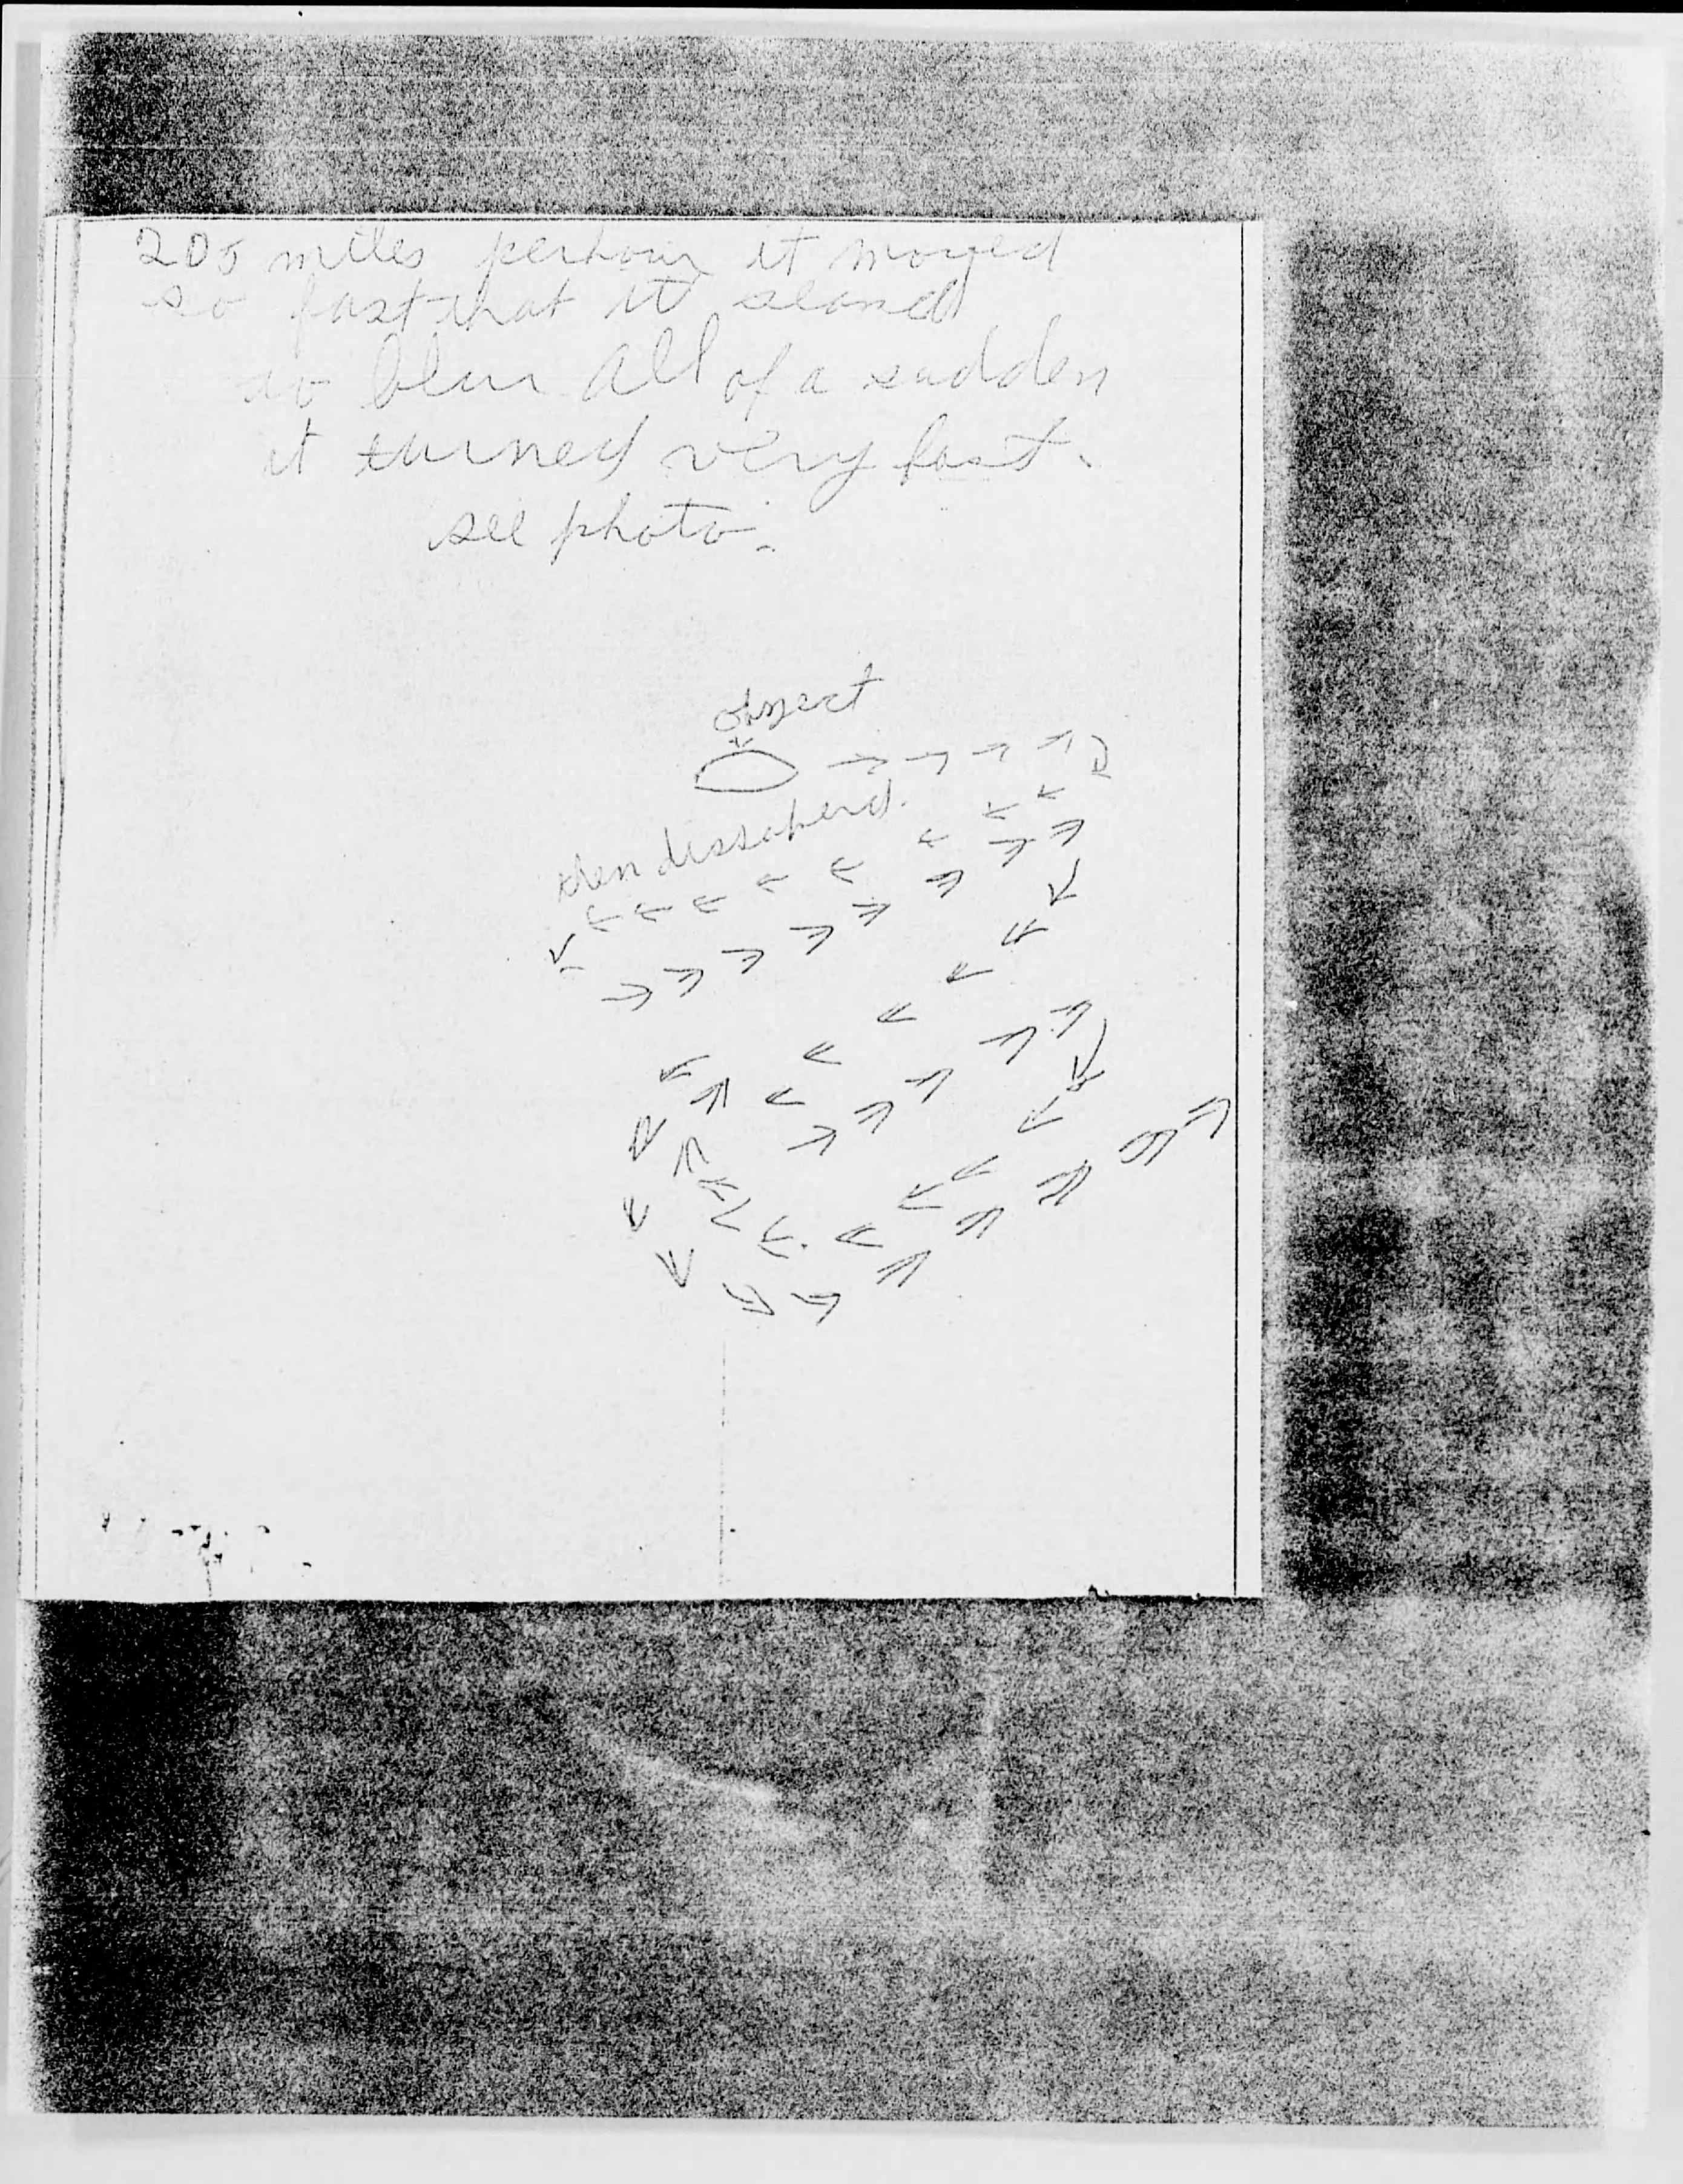 205 miles perhour it moved
so fast that it seamed
to blur All of a sudden
it turned very fast.
see photo.
object
then dissaperd.